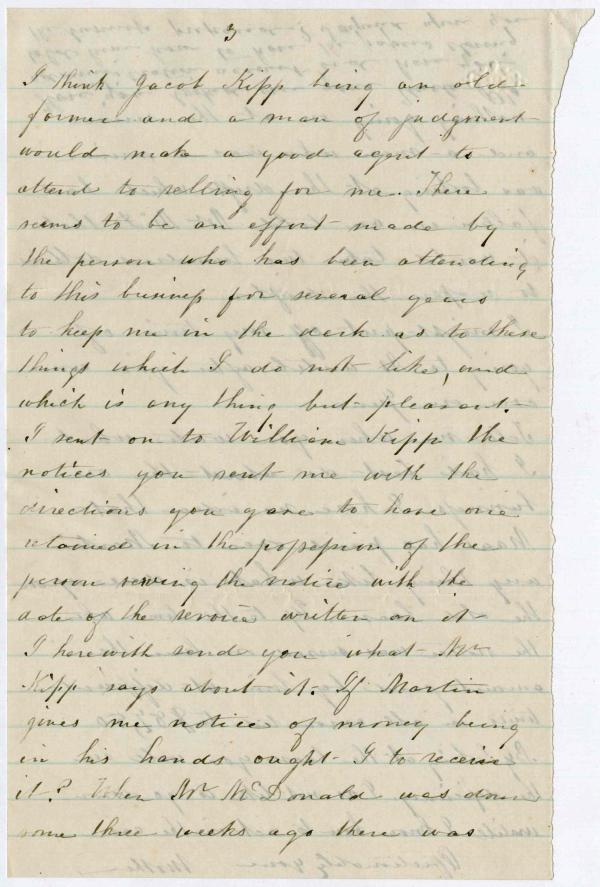 3
I think Jacob Kipp being an old
farmer and a man of judgment
would make a good agent to
attend to selling for me. There
seems to be an effort made by
the person who has been attending
to this business for several years
to keep me in the dark as to these
things which I do not like, and
which is any thing but pleasant.
I sent on to William Kipp the
notices you sent me with the
directions you gave to have one
retained in the possession of the
person serving the notice with the
date of the service written on it
I herewith send you what Mr
Kipp says about it. If Martin
gives me notice of money being
in his hands ought I to receive
it? When Mr McDonald was down
some three weeks ago there was